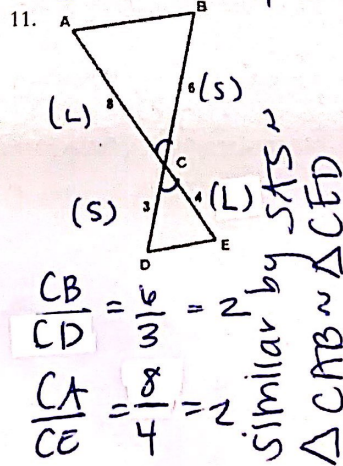 11. A B
8 6 (S)
(L)
C
(S) 3 4 (L)
D E
CB/CD = 6/3 = 2
CA/CE = 8/4 = 2
Similar by SAS ~
△ CAB ~ △ CED